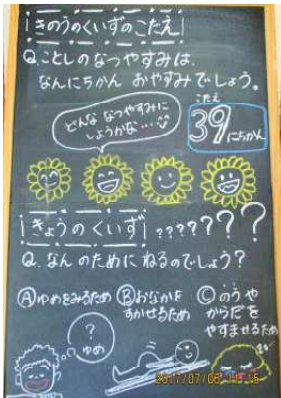 きのうのくいずのこたえ
Q. ことしのなつやすみは、
なんにちかん おやすみでしょう。
どんな なつやすみに
しようかな…
こたえ
39にちかん
きょうのくいず ???????
Q. なんのために ねるのでしょう?
Ⓐゆめをみるため
Ⓑおなかを
すかせるため
Ⓒのうや
からだを
やすませるため
?
ゆめ
2017/07/06 11:15